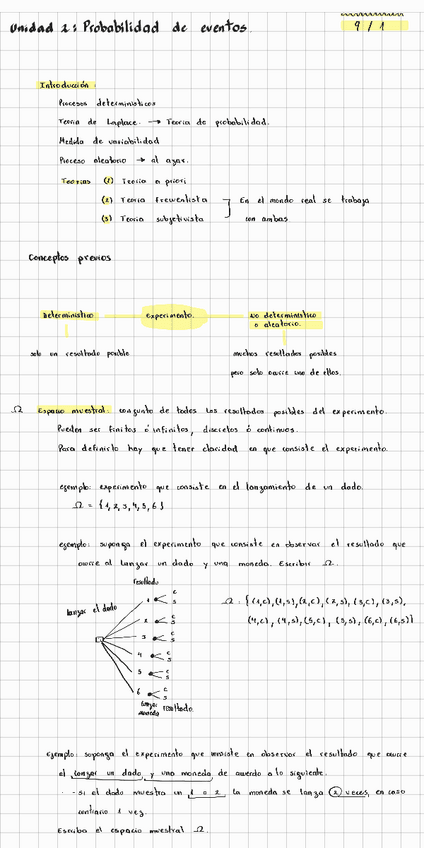 Unidad 2: Probabilidad de eventos.
9 / 1
Introducción:
Procesos determinísticos
Teoría de Laplace. → Teoría de probabilidad.
Medida de variabilidad
Proceso aleatorio → al azar.
Teorías (1) Teoría a priori
(2) Teoría frewentista ] En el mundo real se trabaja
(3) Teoría subjetivista con ambas
Conceptos previos
Determinístico experimento. No determinístico
o aleatorio.
solo un resultado posible muchos resultados posibles
pero solo ocurre uno de ellos.
Ω Espacio muestral: conjunto de todos los resultados posibles del experimento.
Pueden ser finitos ó infinitos, discretos ó continuos.
Para definirlo hay que tener claridad en que consiste el experimento.
ejemplo: experimento que consiste en el lanzamiento de un dado.
Ω = {1, 2, 3, 4, 5, 6}
ejemplo: suponga el experimento que consiste en observar el resultado que
ocurre al lanzar un dado y una moneda. Escribir Ω.
resultado
lanzar el dado
1 c s
2 c s
3 c s
4 c s
5 c s
6 c s
lanzar moneda resultado
Ω: {(1,c), (1,s), (2,c), (2,s), (3,c), (3,s),
(4,c), (4,s), (5,c), (5,s), (6,c), (6,s)}
ejemplo: suponga el experimento que consiste en observar el resultado que ocurre
al lanzar un dado, y una moneda, de acuerdo a lo siguiente.
- si el dado muestra un 1 o 2 la moneda se lanza 2 veces, en caso
contrario 1 vez.
Escriba el espacio muestral Ω.